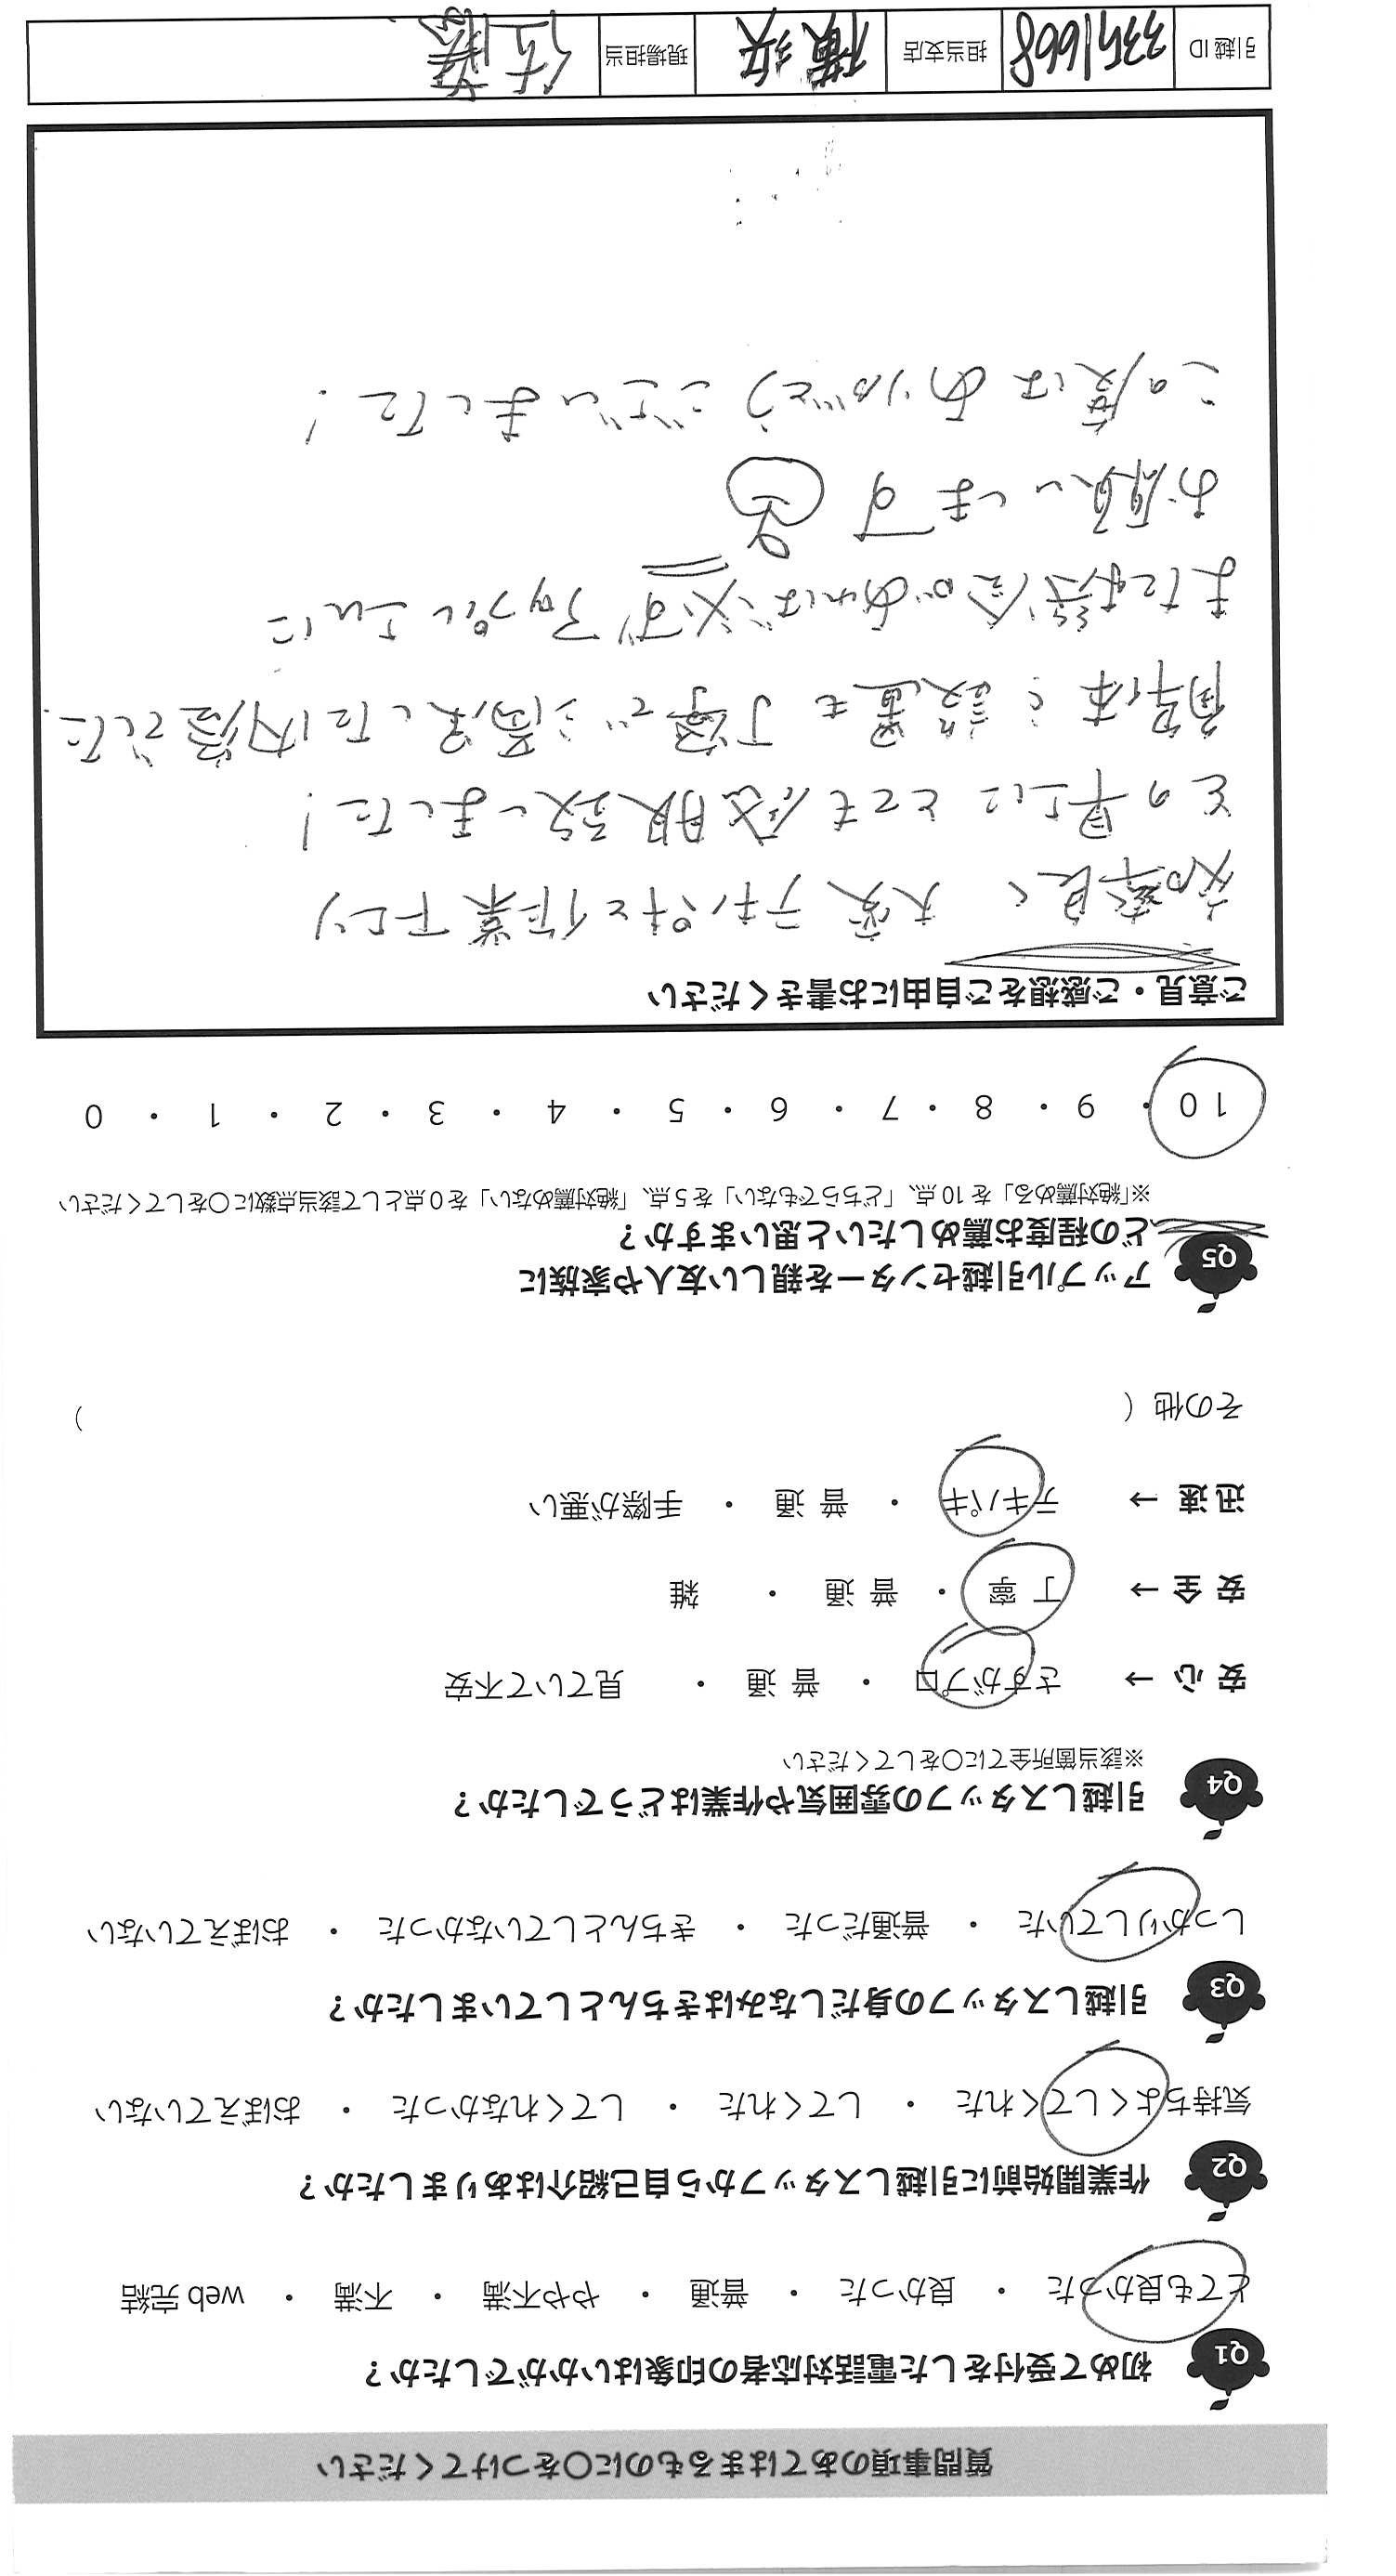 質問事項のあてはまるものに○をつけてください
Q1 初めて受付をした電話対応者の印象はいかがでしたか？
とても良かった ・ 良かった ・ 普通 ・ やや不満 ・ 不満 ・ web 完結
Q2 作業開始前に引越しスタッフから自己紹介はありましたか？
気持ちよくしてくれた ・ してくれた ・ してくれなかった ・ おぼえていない
Q3 引越しスタッフの身だしなみはきちんとしていましたか？
しっかりしていた ・ 普通だった ・ きちんとしていなかった ・ おぼえていない
Q4 引越しスタッフの雰囲気や作業はどうでしたか？
※該当箇所全てに○をしてください
安心 → さすがプロ ・ 普通 ・ 見ていて不安
安全 → 丁寧 ・ 普通 ・ 雑
迅速 → テキパキ ・ 普通 ・ 手際が悪い
その他（ ）
Q5 アップル引越センターを親しい友人や家族に
どの程度お薦めしたいと思いますか？
※「絶対薦める」を 10 点、「どちらでもない」を 5 点、「絶対薦めない」を 0 点として該当点数に○をしてください
10 ・ 9 ・ 8 ・ 7 ・ 6 ・ 5 ・ 4 ・ 3 ・ 2 ・ 1 ・ 0
ご意見・ご感想をご自由にお書きください
効率良く 大変テキパキと作業下さり
その早さに とても感服致しました！
解体も設置も丁寧で満足した内容でした
また機会があれば必ずアップルさんに
お願いします
この度はありがとうございました！
引越 ID 3351668 担当支店 横浜 現場担当 佐藤